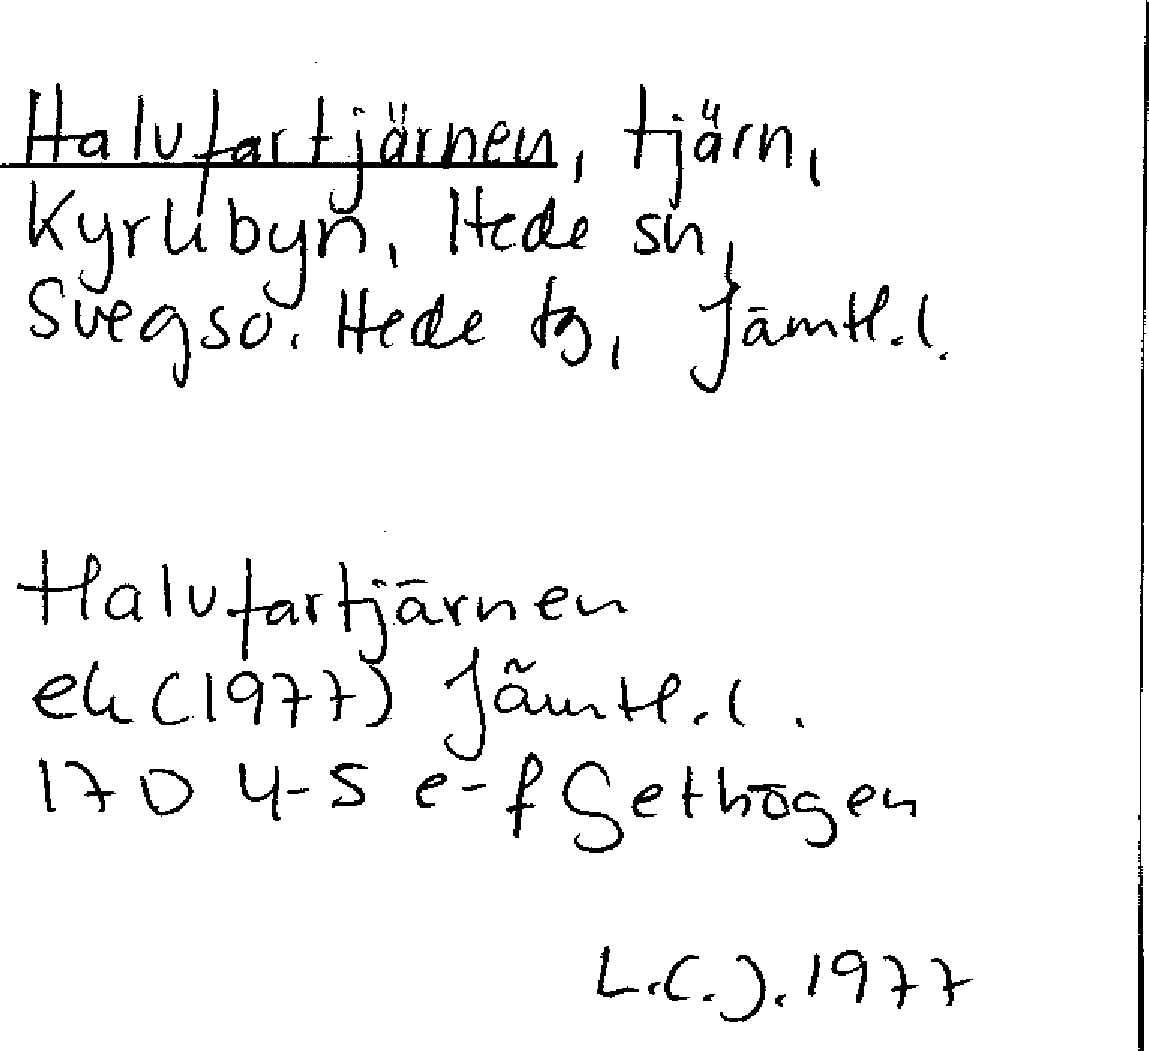 Halvfartjärnen, tjärn,
Kyrkbyn, Hede sn,
Svegs o. Hede tg, Jämtl.l.
Halvfartjärnen
ek (1977) Jämtl.l.
17D 4-5 e-f Gethögen
L.C.J. 1977